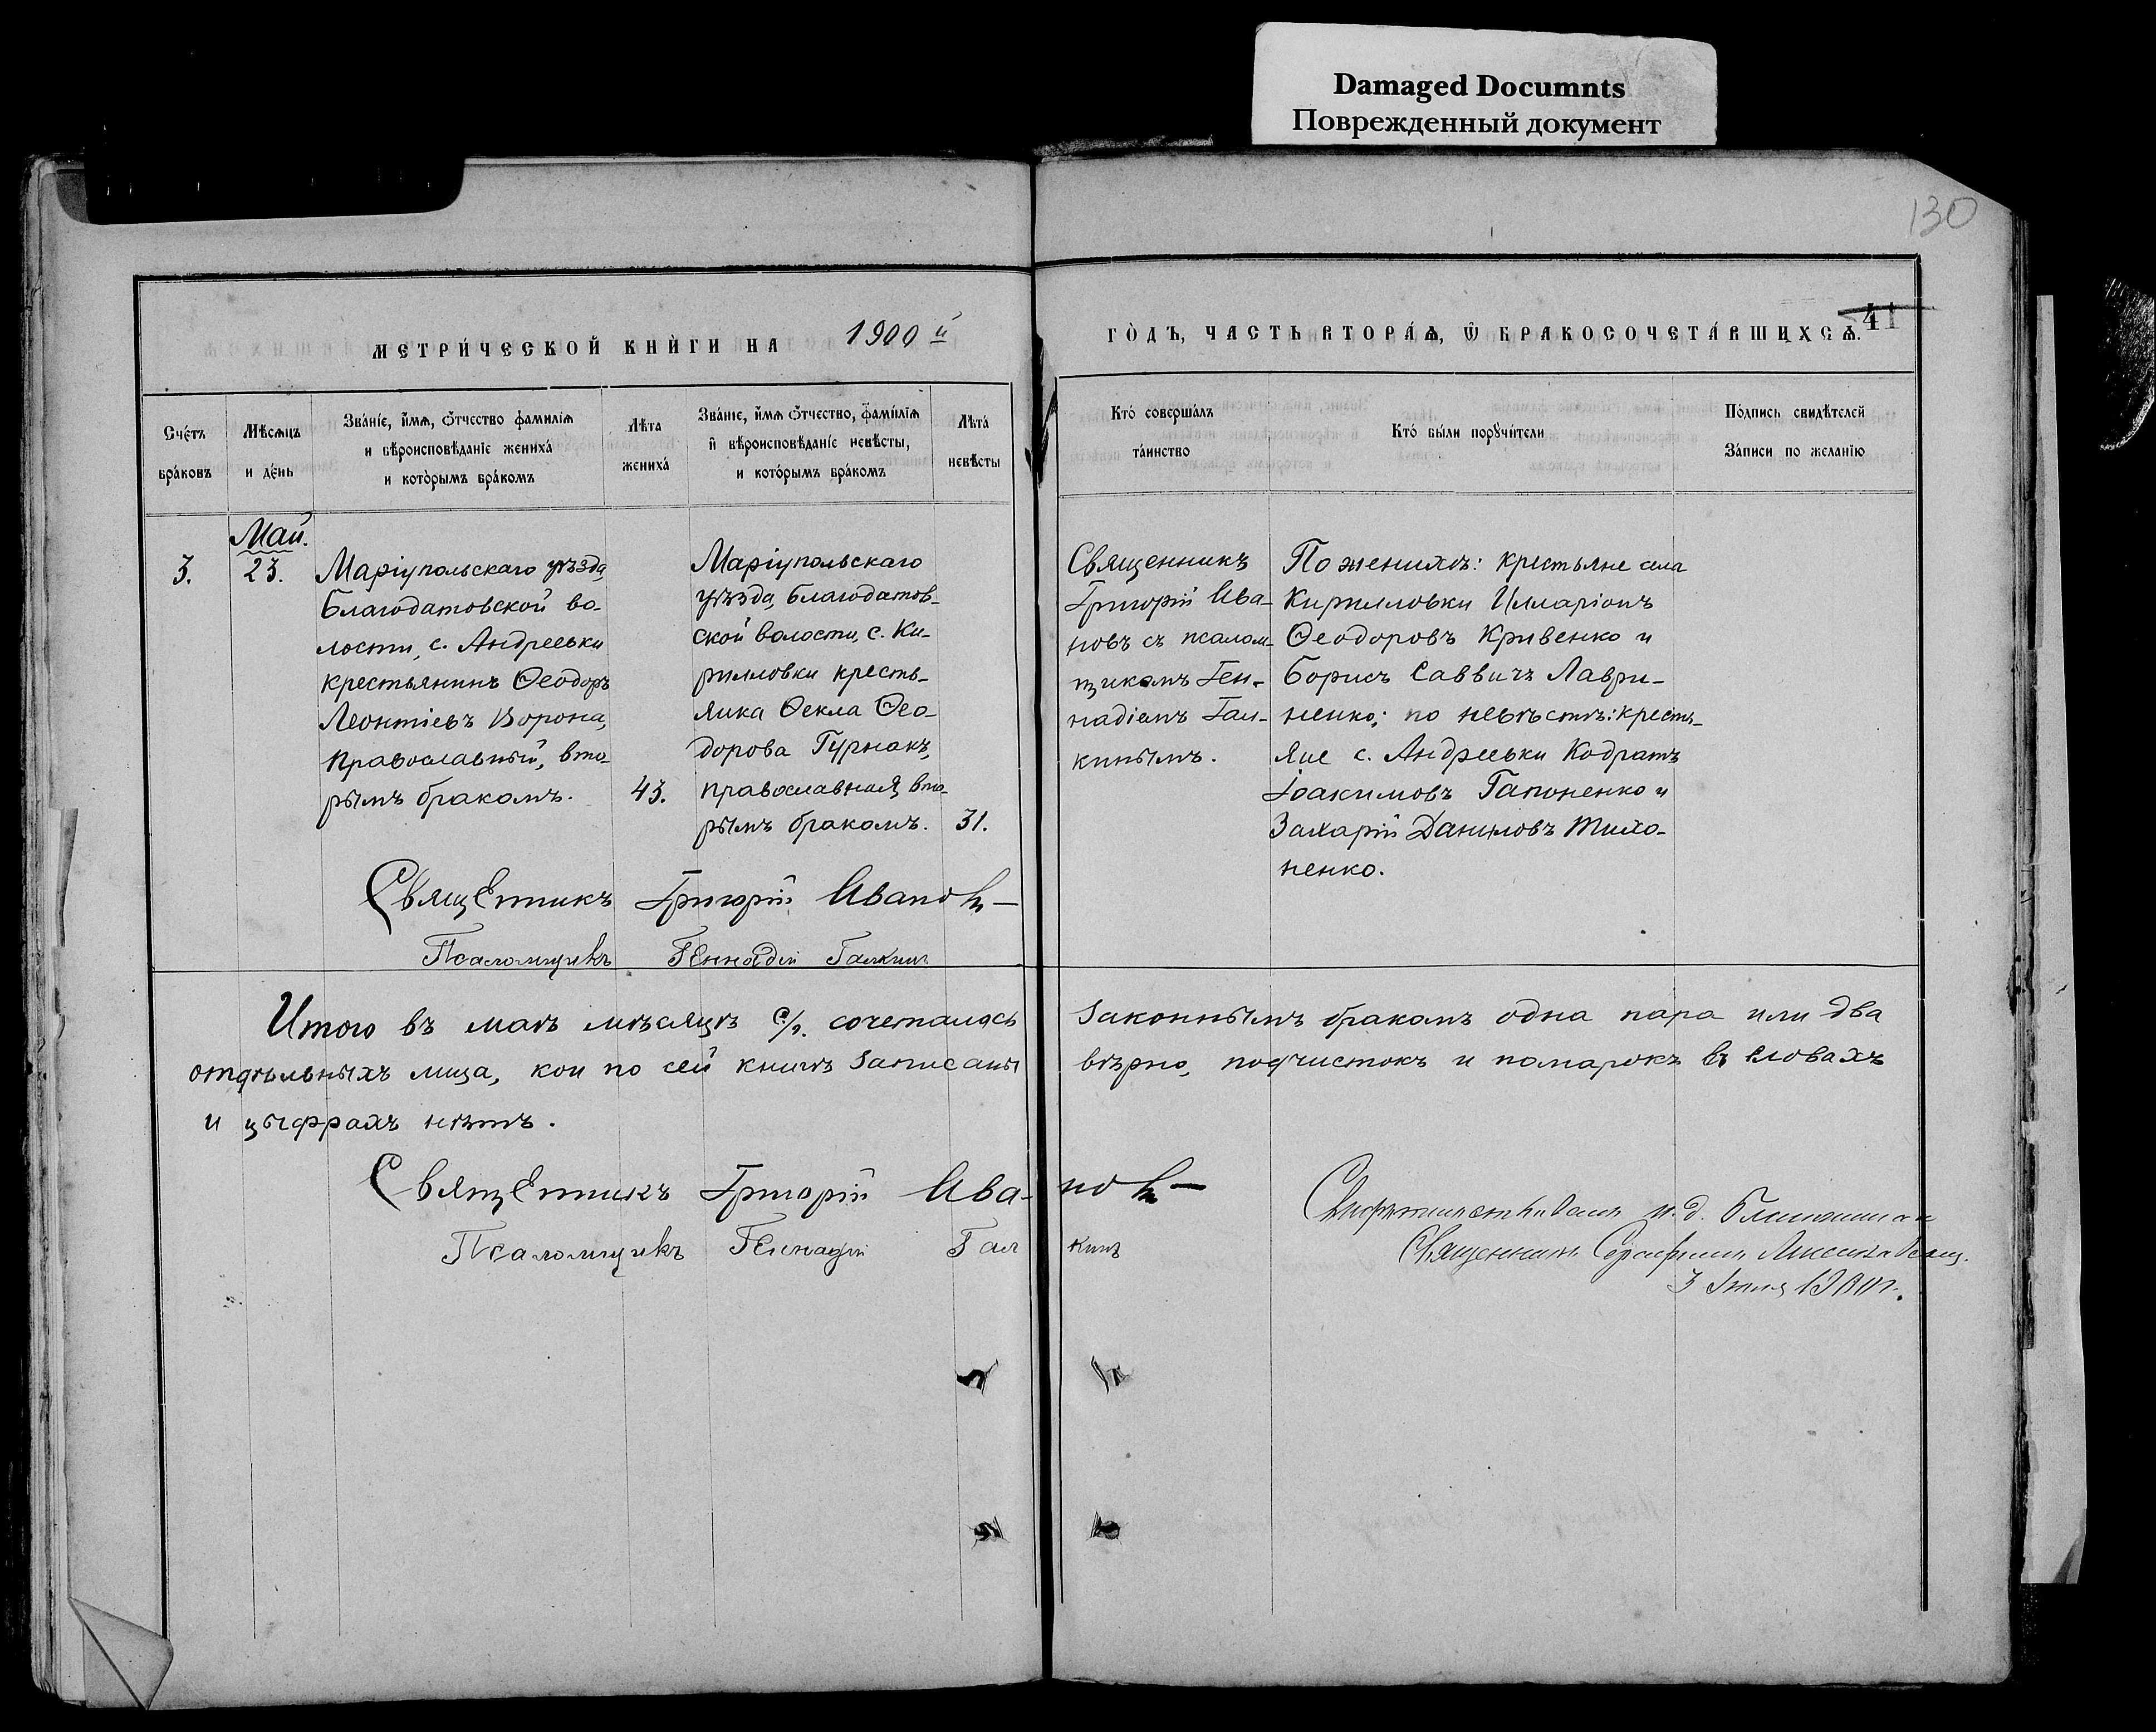 Damaged Documnts
Поврежденный документ
130
41
МЕТРИ́ЧЕСКОЙ КНИ́ГИ НА 1900й
ГО́ДЪ, ЧАСТЬ ВТОРА́Ѧ, Ѡ҆ БРАКОСОЧЕТА́ВШИХСѦ.
Сче́тъ
бра́ковъ
Мѣ́сѧцъ
и де́нь
Зва́нїе, и҆́мѧ, ѻ҆́тчество фамилїѧ
и вѣроисповѣ́данїе жениха̀
и кото́рымъ бра́комъ
Лѣ́та
жениха̀
Зва́нїе, и҆́мѧ ѻ҆́тчество, фами́лїѧ
и҆ вѣроисповѣ́данїе невѣ́сты,
и кото́рымъ бра́комъ
Лѣ́та
невѣ́сты
Кто̀ соверша́лъ
та́инство
Кто̀ бы́ли порꙋчи́тели
По́дпись свидѣ́телей
За́писи по жела́нїю
Май.
3.
23.
Маріупольскаго уѣзда,
Благодатовской во-
лости, с. Андреевки
крестьянинъ Ѳеодоръ
Леонтіевъ Ворона,
православный, вто-
рымъ бракомъ.
43.
Маріупольскаго
уѣзда, Благодатов-
ской волости, с. Ки-
рилловки кресть-
янка Ѳекла Ѳео-
дорова Гурнакъ,
православная, вто-
рымъ бракомъ.
31.
Священникъ
Григорій Ива-
новъ съ псалом-
щикомъ Ген-
надіемъ Гал-
кинымъ.
По женихѣ: крестьяне села
Кирилловки Илларіонъ
Ѳеодоровъ Кривенко и
Борисъ Саввичъ Лаври-
ненко; по невѣстѣ: кресть-
яне с. Андреевки Кодратъ
Іоакимовъ Гапоненко и
Захарій Даниловъ Тихо-
ненко.
Священникъ Григорій Ивановъ
Псаломщикъ Геннадій Галкинъ
Итого въ маѣ мѣсяцѣ с/г. сочеталось законнымъ бракомъ одна пара или два
отдѣльныхъ лица, кои по сей книгѣ записаны вѣрно, подчистокъ и помарокъ въ словахъ
и цыфрахъ нѣтъ.
Священникъ Григорій Ивановъ
Псаломщикъ Геннадій Галкинъ
и. д.
Священникъ
3 1900г.